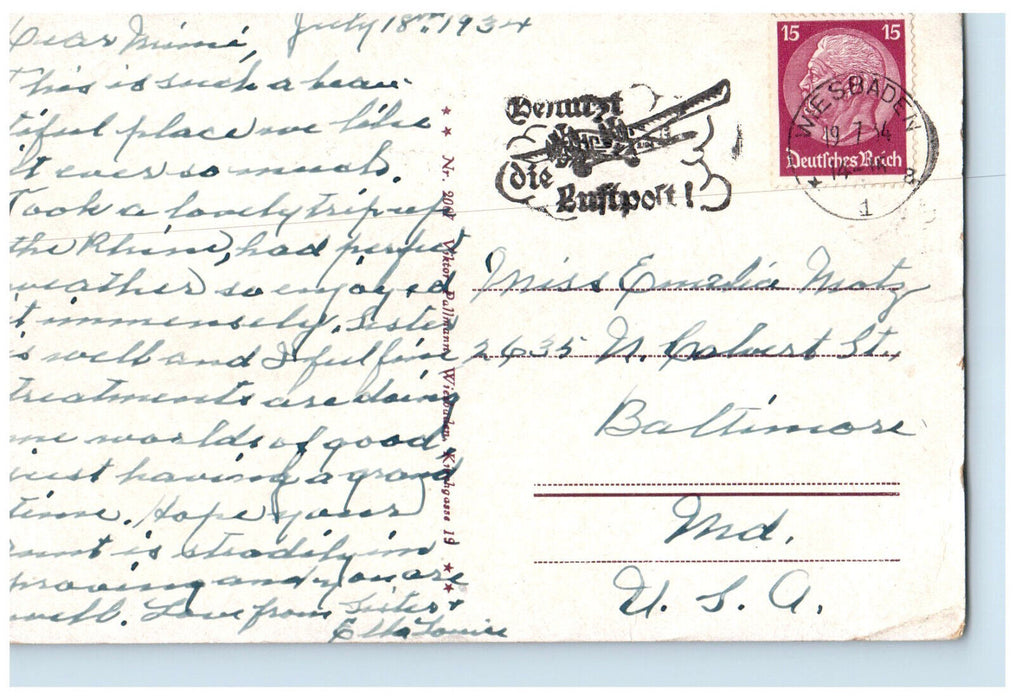 July 18th 1934
Dear Minnie,
This is such a beau-
tiful place we like
it ever so much.
Took a lovely trip up
the Rhine, had perfect
weather so enjoyed
it immensely. Sister
is well and I ful fine
treatments are doing
me worlds of good
just having a grand
time. Hope your
aunt is steadily im
proving and you are
well. Love from Sister +
Ella Louise
★ ★ Nr. Viktor Pallmann, Wiesbaden, Kirchgasse 19 ★ ★
Benutzt
die
Luftpost!
15 15
Deutsches Reich
WIESBADEN
19 7 34
1
Miss Emelia Motz
2635 N. Calvert St.,
Baltimore
Md.
U. S. A.